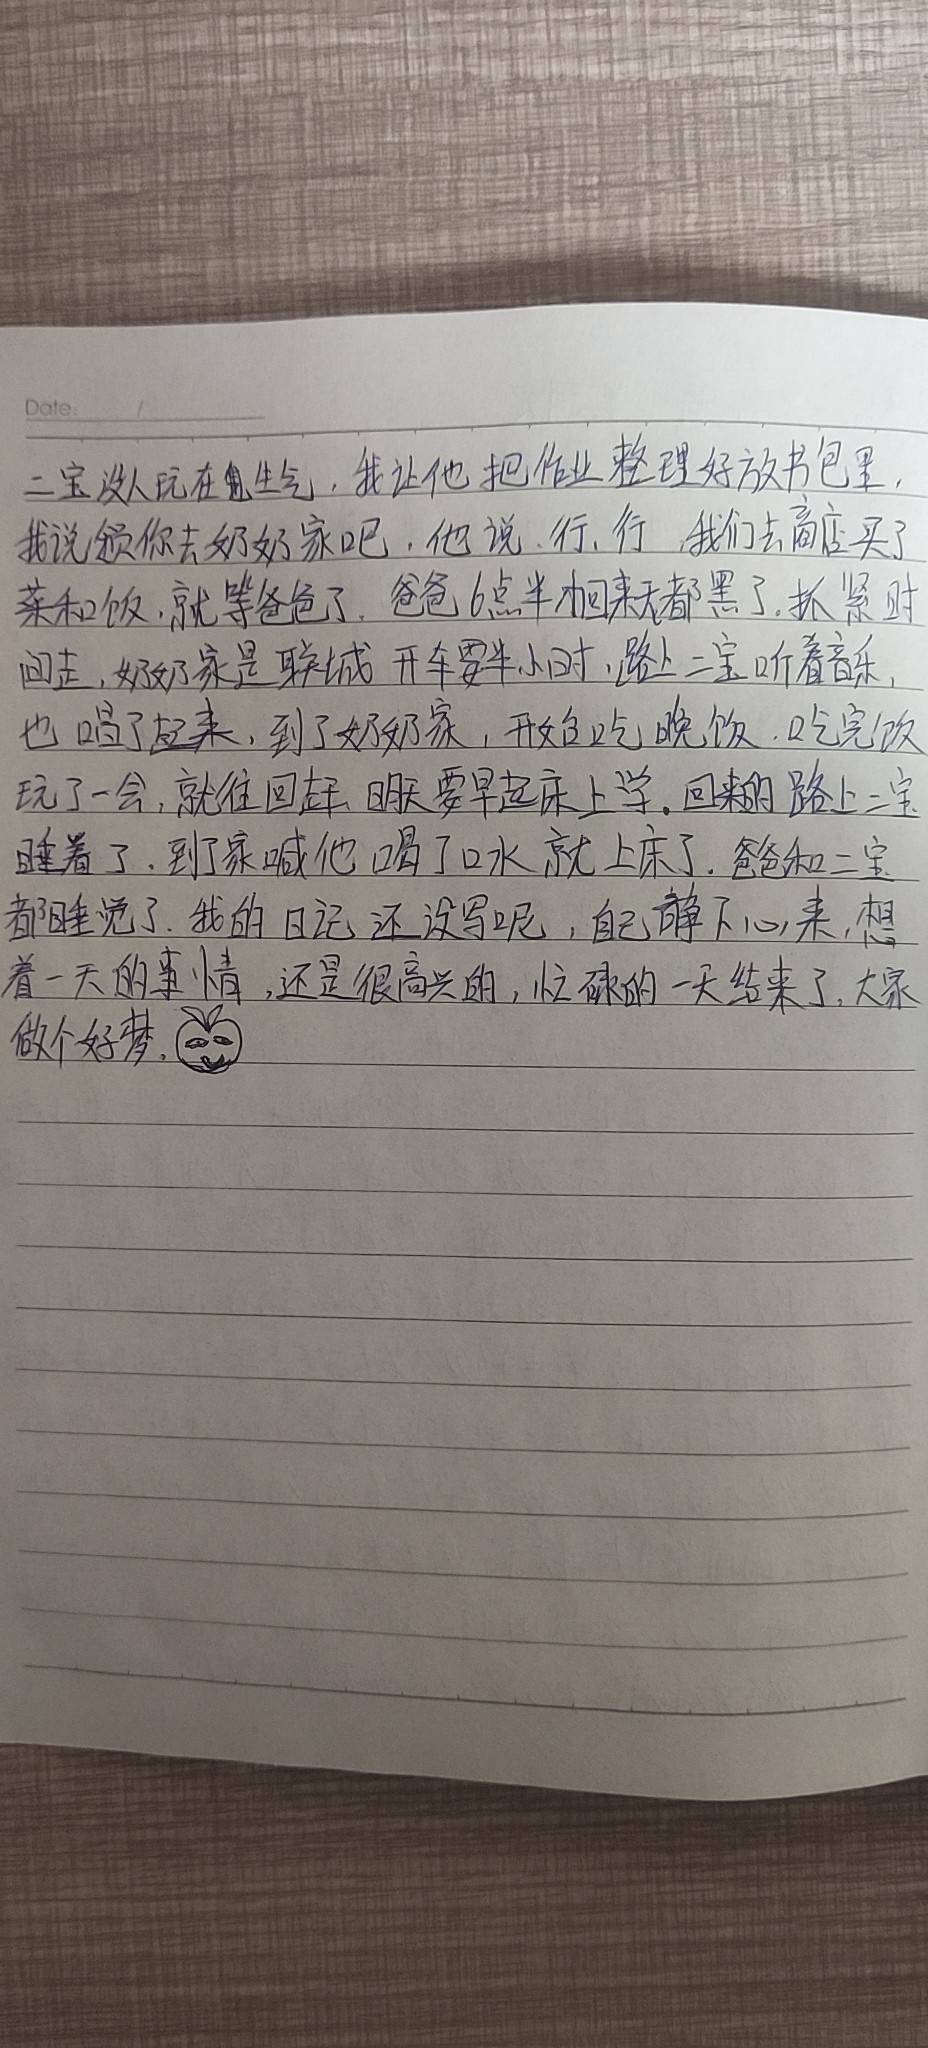 Date: /
二宝没人玩在生气，我让他把作业整理好放书包里，
我说领你去奶奶家吧，他说.行、行，我们去商店买了
菜和饭，就等爸爸了，爸爸6点半才回来天都黑了，抓紧时
间走，奶奶家是联城开车要半小时，路上二宝听着音乐，
也唱了起来，到了奶奶家，开始吃晚饭，吃完饭
玩了一会，就往回走，明天要早起床上学。回来的路上二宝
睡着了，到了家喊他喝了口水就上床了，爸爸和二宝
都睡觉了，我的日记还没写呢，自己静下心来，想
着一天的事情，还是很高兴的，忙碌的一天结来了，大家
做个好梦，